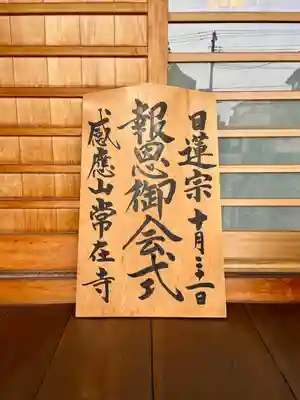 日蓮宗 十月二十一日
報恩御会式
感應山常在寺